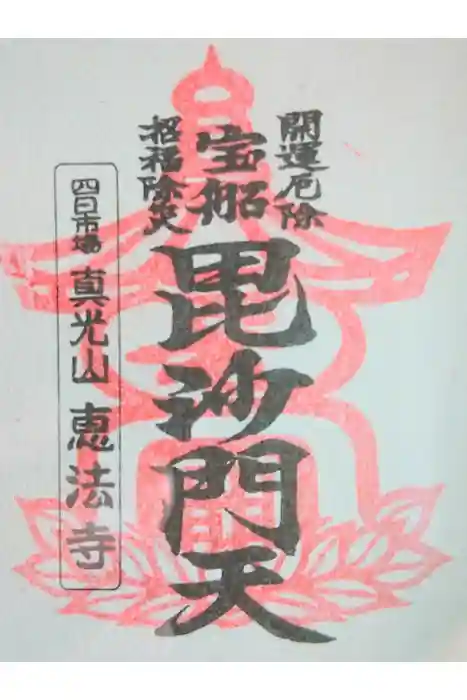 開運厄除
宝船
招福除災
毘沙門天
四日市場 真光山 恵法寺